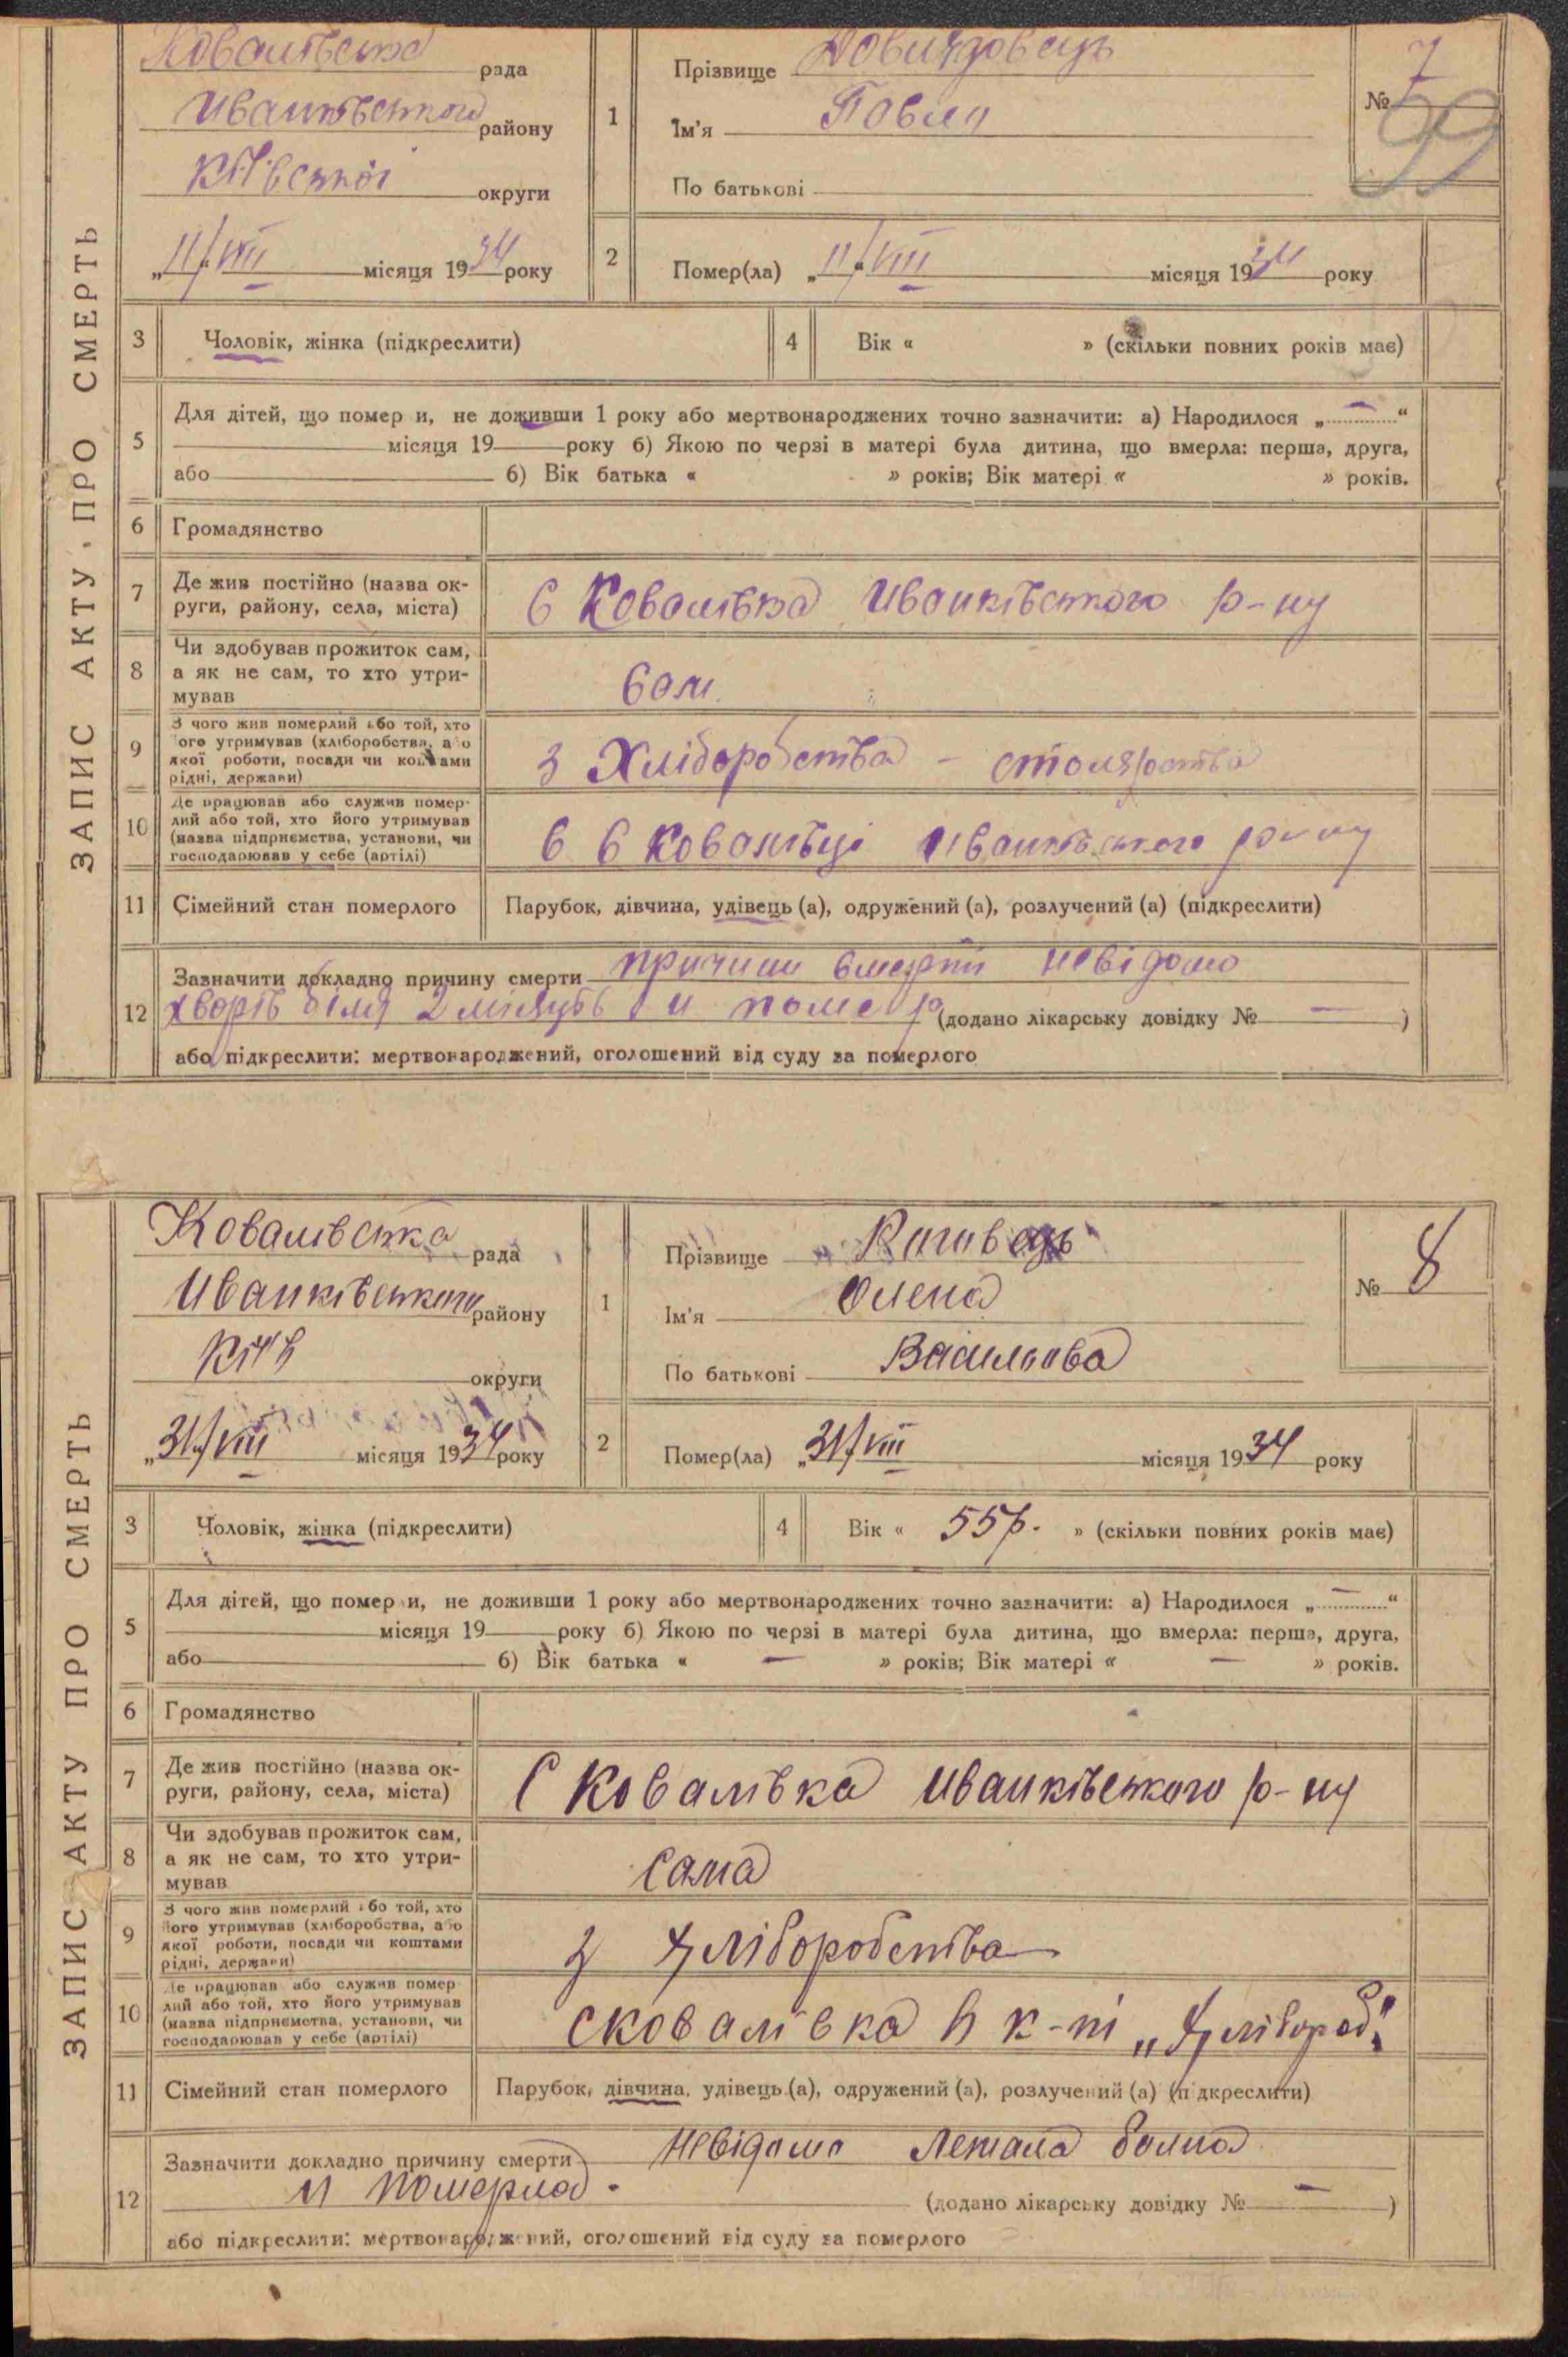 ЗАПИС АКТУ ПРО СМЕРТЬ
Ковалівська рада
Иванківського району
Київської округи
„11/VIII місяця 1934 року
1 Прізвище
Ім'я Павло
По батькові
№ 7
99
2 Помер(ла) „11/VIII місяця 1934 року
3 Чоловік, жінка (підкреслити)
4 Вік « » (скільки повних років має)
5 Для дітей, що помер и, не доживши 1 року або мертвонароджених точно зазначити: а) Народилося „ — “
місяця 19 року б) Якою по черзі в матері була дитина, що вмерла: перша, друга,
або 6) Вік батька « » років; Вік матері « » років.
6 Громадянство
7 Де жив постійно (назва ок-
руги, району, села, міста)
С Ковалівка Иванківського р-ну
8 Чи здобував прожиток сам,
а як не сам, то хто утри-
мував
сам
9 З чого жив померлий або той, хто
його утримував (хліборобства, або
якої роботи, посади чи коштами
рідні, держави)
З Хліборобства - столярства
10 Де працював або служив помер-
лий або той, хто його утримував
(назва підприємства, установи, чи
господарював у себе (артілі)
в с Ковалівці Иванківського р-ну
11 Сімейний стан померлого
Парубок, дівчина, удівець (а), одружений (а), розлучений (а) (підкреслити)
12 Зазначити докладно причину смерти причини смерти невідомо
хворів біля 2 місяців и помер (додано лікарську довідку № — )
або підкреслити: мертвонароджений, оголошений від суду за померлого
ЗАПИС АКТУ ПРО СМЕРТЬ
Ковалівська рада
Иванківського району
Київ округи
„31/VIII місяця 1934 року
1 Прізвище
Ім'я Олена
По батькові
№ 8
2 Помер(ла) „31/VIII місяця 1934 року
3 Чоловік, жінка (підкреслити)
4 Вік « 55 р. » (скільки повних років має)
5 Для дітей, що помер и, не доживши 1 року або мертвонароджених точно зазначити: а) Народилося „ — “
місяця 19 року б) Якою по черзі в матері була дитина, що вмерла: перша, друга,
або 6) Вік батька « — » років; Вік матері « — » років.
6 Громадянство
7 Де жив постійно (назва ок-
руги, району, села, міста)
С Ковалівка Иванківського р-ну
8 Чи здобував прожиток сам,
а як не сам, то хто утри-
мував
сама
9 З чого жив померлий або той, хто
його утримував (хліборобства, або
якої роботи, посади чи коштами
рідні, держави)
З Хліборобства
10 Де працював або служив помер-
лий або той, хто його утримував
(назва підприємства, установи, чи
господарював у себе (артілі)
с Ковалівка в к-пі „Хлібороб"
11 Сімейний стан померлого
Парубок, дівчина, удівець (а), одружений (а), розлучений (а) (підкреслити)
12 Зазначити докладно причину смерти Невідома Лежала болна
и померла. (додано лікарську довідку № — )
або підкреслити: мертвонароджений, оголошений від суду за померлого